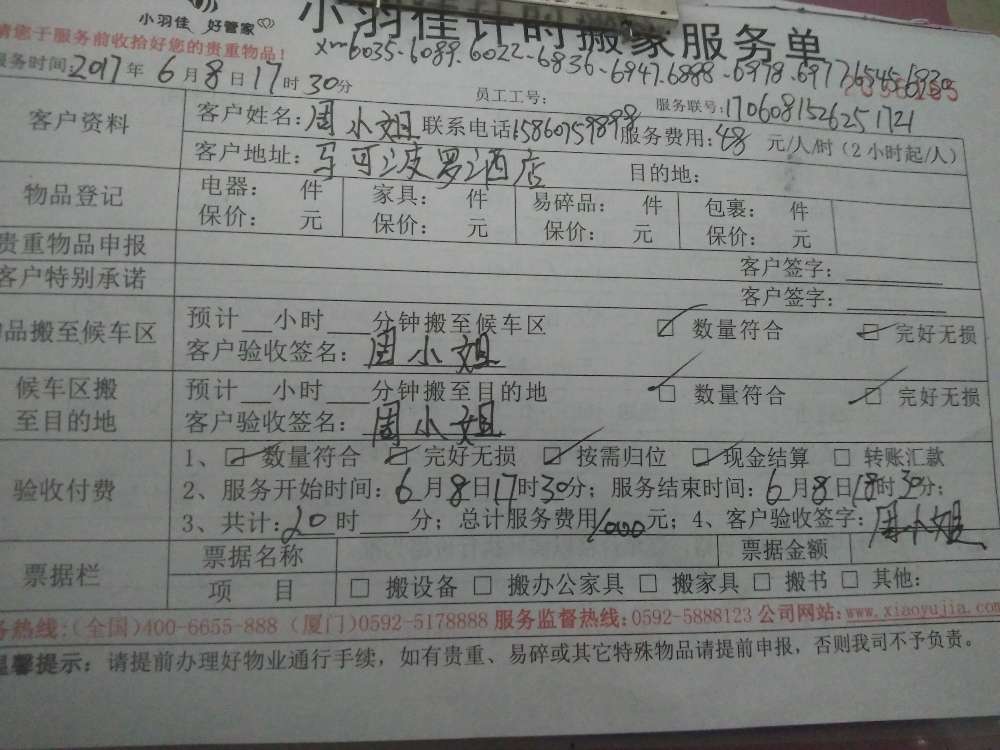 小羽佳 好管家
小羽佳计时搬家服务单
请您于服务前收拾好您的贵重物品！
xm6035-6089.6022-6836-6947.6888-6978.6977
服务时间:2017年6月8日17时30分
员工工号:
服务联号:1706081526251721
客户资料
客户姓名:周小姐 联系电话15860759898 服务费用:48 元/人/时(2小时起/人)
客户地址:马可波罗酒店 目的地:
物品登记
电器: 件 家具: 件 易碎品: 件 包裹: 件
保价: 元 保价: 元 保价: 元 保价: 元
贵重物品申报 客户签字:
客户特别承诺 客户签字:
物品搬至候车区
预计__小时___分钟搬至候车区 ☑ 数量符合 ☑ 完好无损
客户验收签名:周小姐
候车区搬至目的地
预计__小时___分钟搬至目的地 ☑ 数量符合 ☑ 完好无损
客户验收签名:周小姐
验收付费
1、☑ 数量符合 ☑ 完好无损 ☑ 按需归位 ☑ 现金结算 □ 转账汇款
2、服务开始时间:6月8日17时30分;服务结束时间:6月8日18时30分;
3、共计:20时____分;总计服务费用1000元;4、客户验收签字:周小姐
票据栏
票据名称 票据金额
项 目 □ 搬设备 □ 搬办公家具 □ 搬家具 □ 搬书 □ 其他:
务热线:(全国)400-6655-888 (厦门)0592-5178888 服务监督热线:0592-5888123 公司网站:www.xiaoyujia.com
温馨提示:请提前办理好物业通行手续，如有贵重、易碎或其它特殊物品请提前申报，否则我司不予负责。